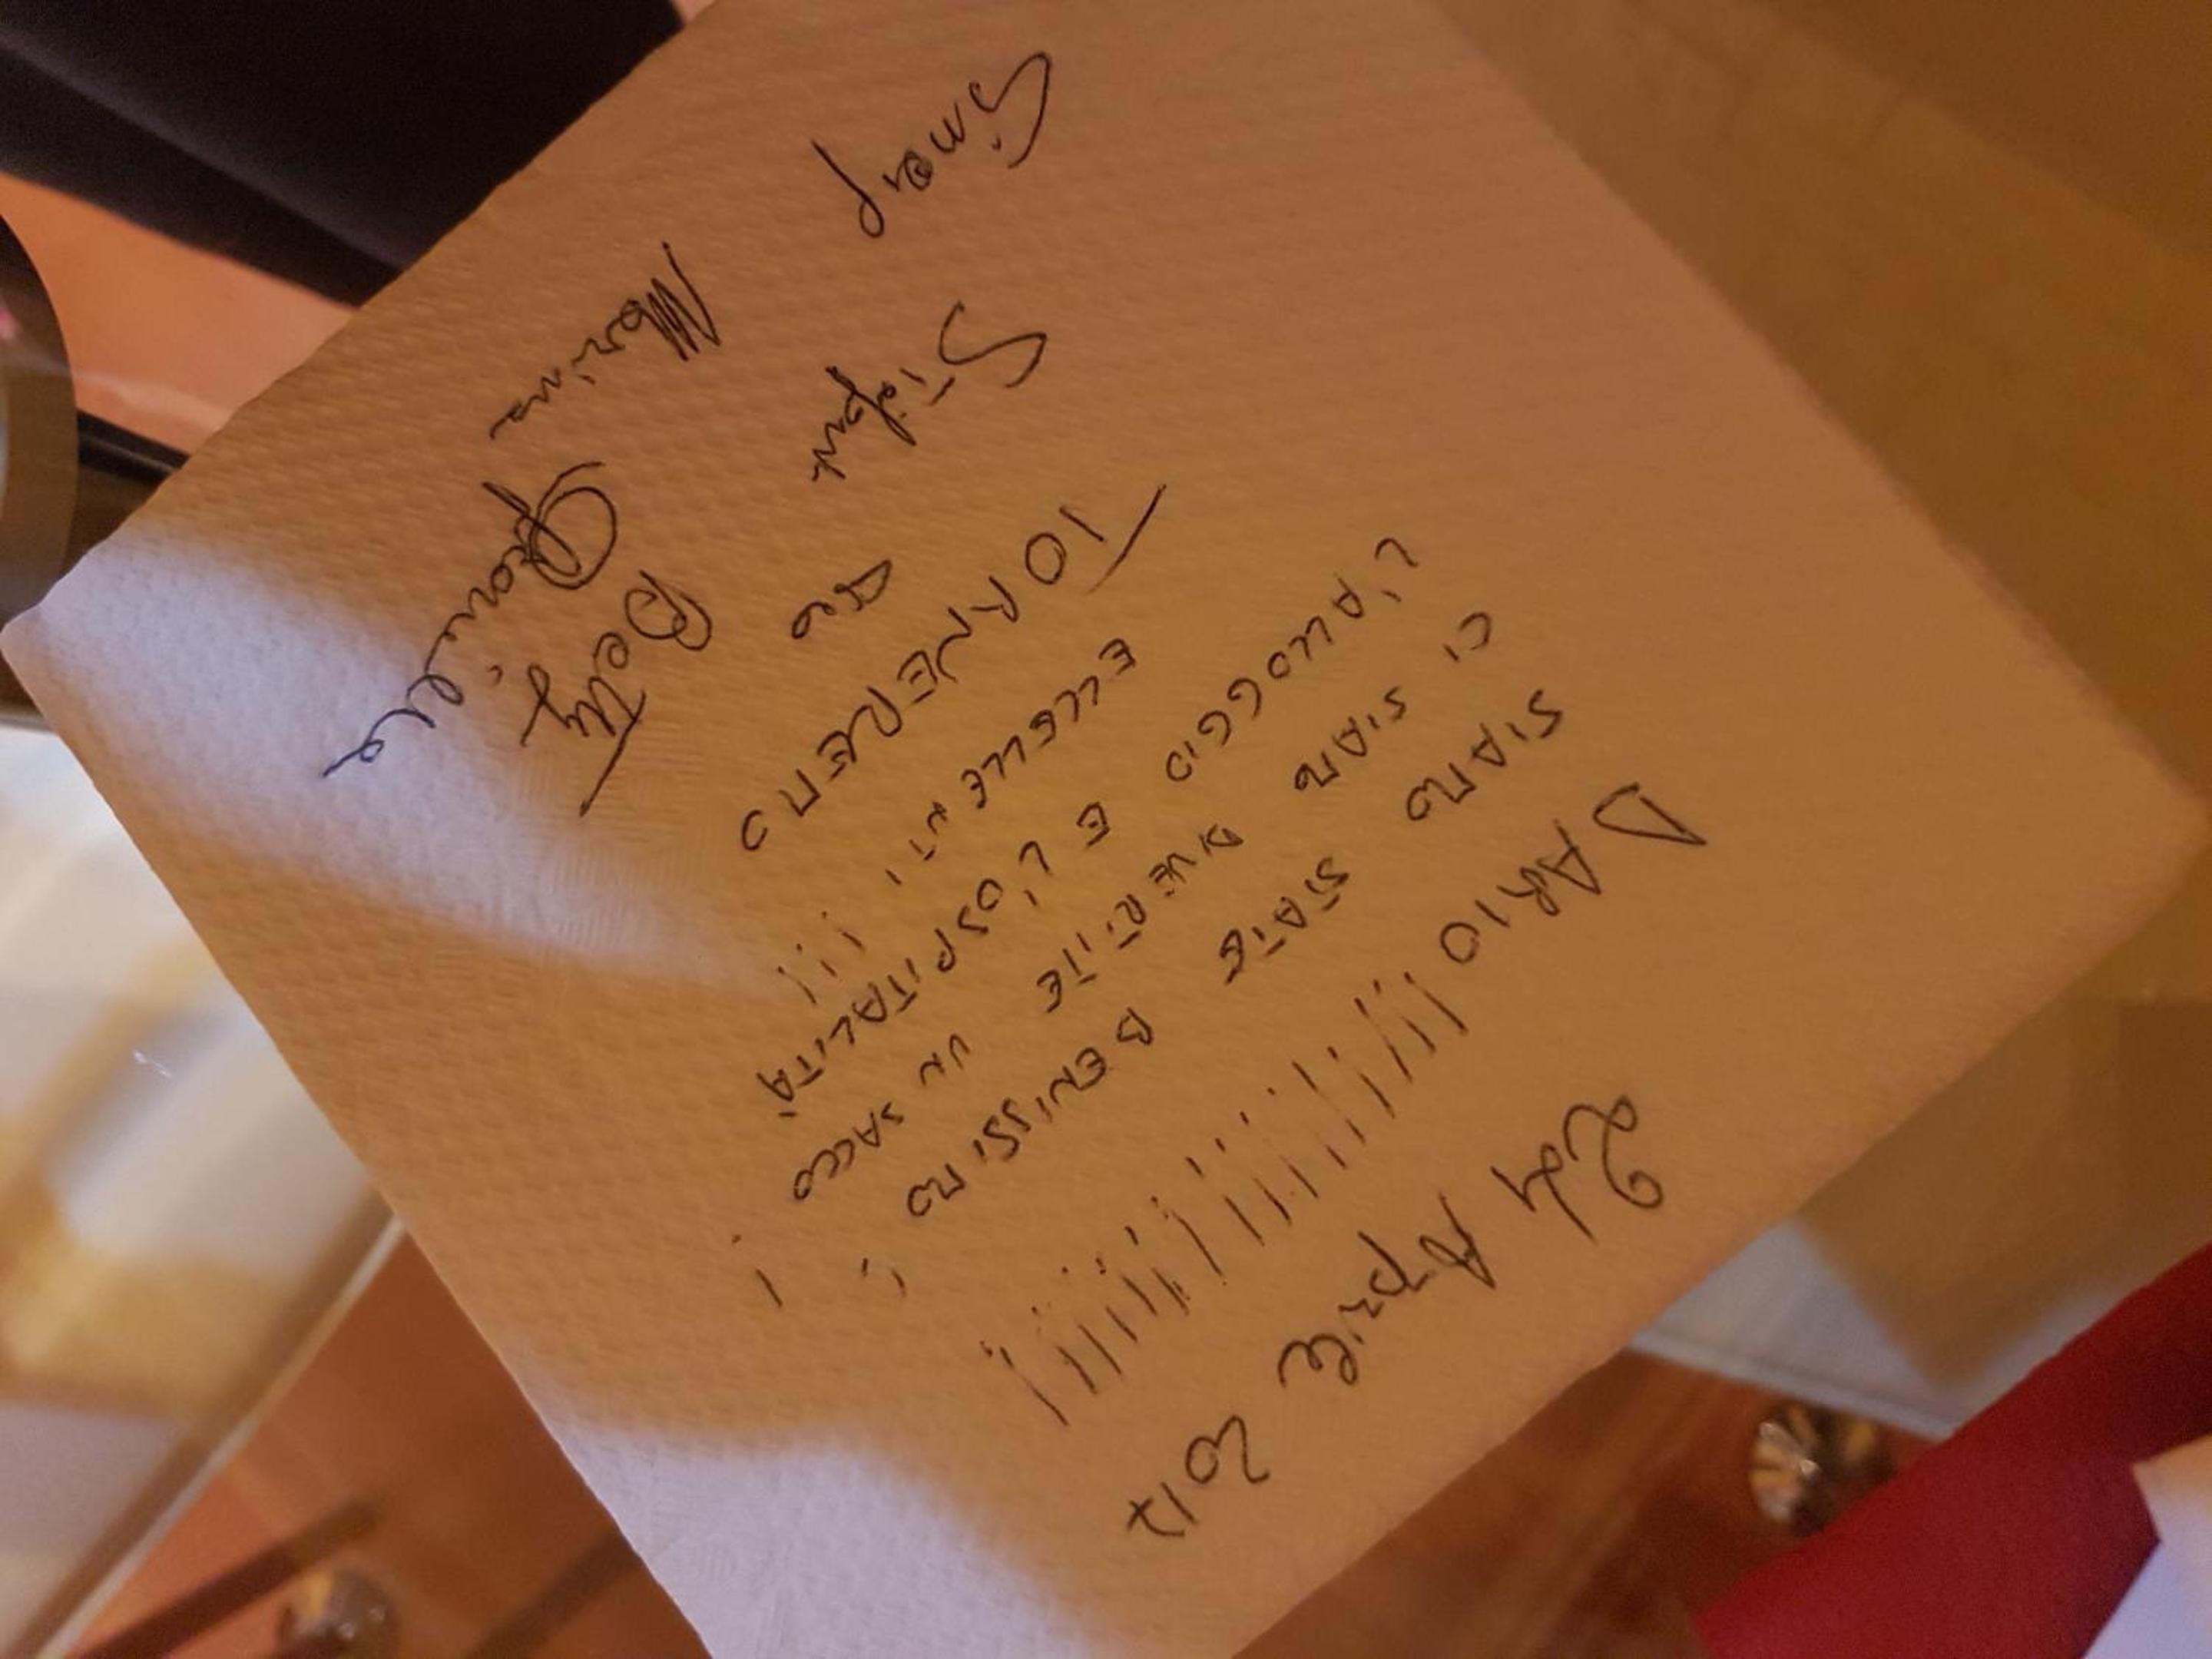 24 Aprile 2017
DARIO !!!!!!!!!!!!!!!!!!
SIAMO STATE BENISSIMO !!
CI SIAMO DIVERTITE UN SACCO !
L'ALLOGGIO E L'OSPITALITÀ
ECCELLENTI !!!
TORNEREMO
Betty
Marina